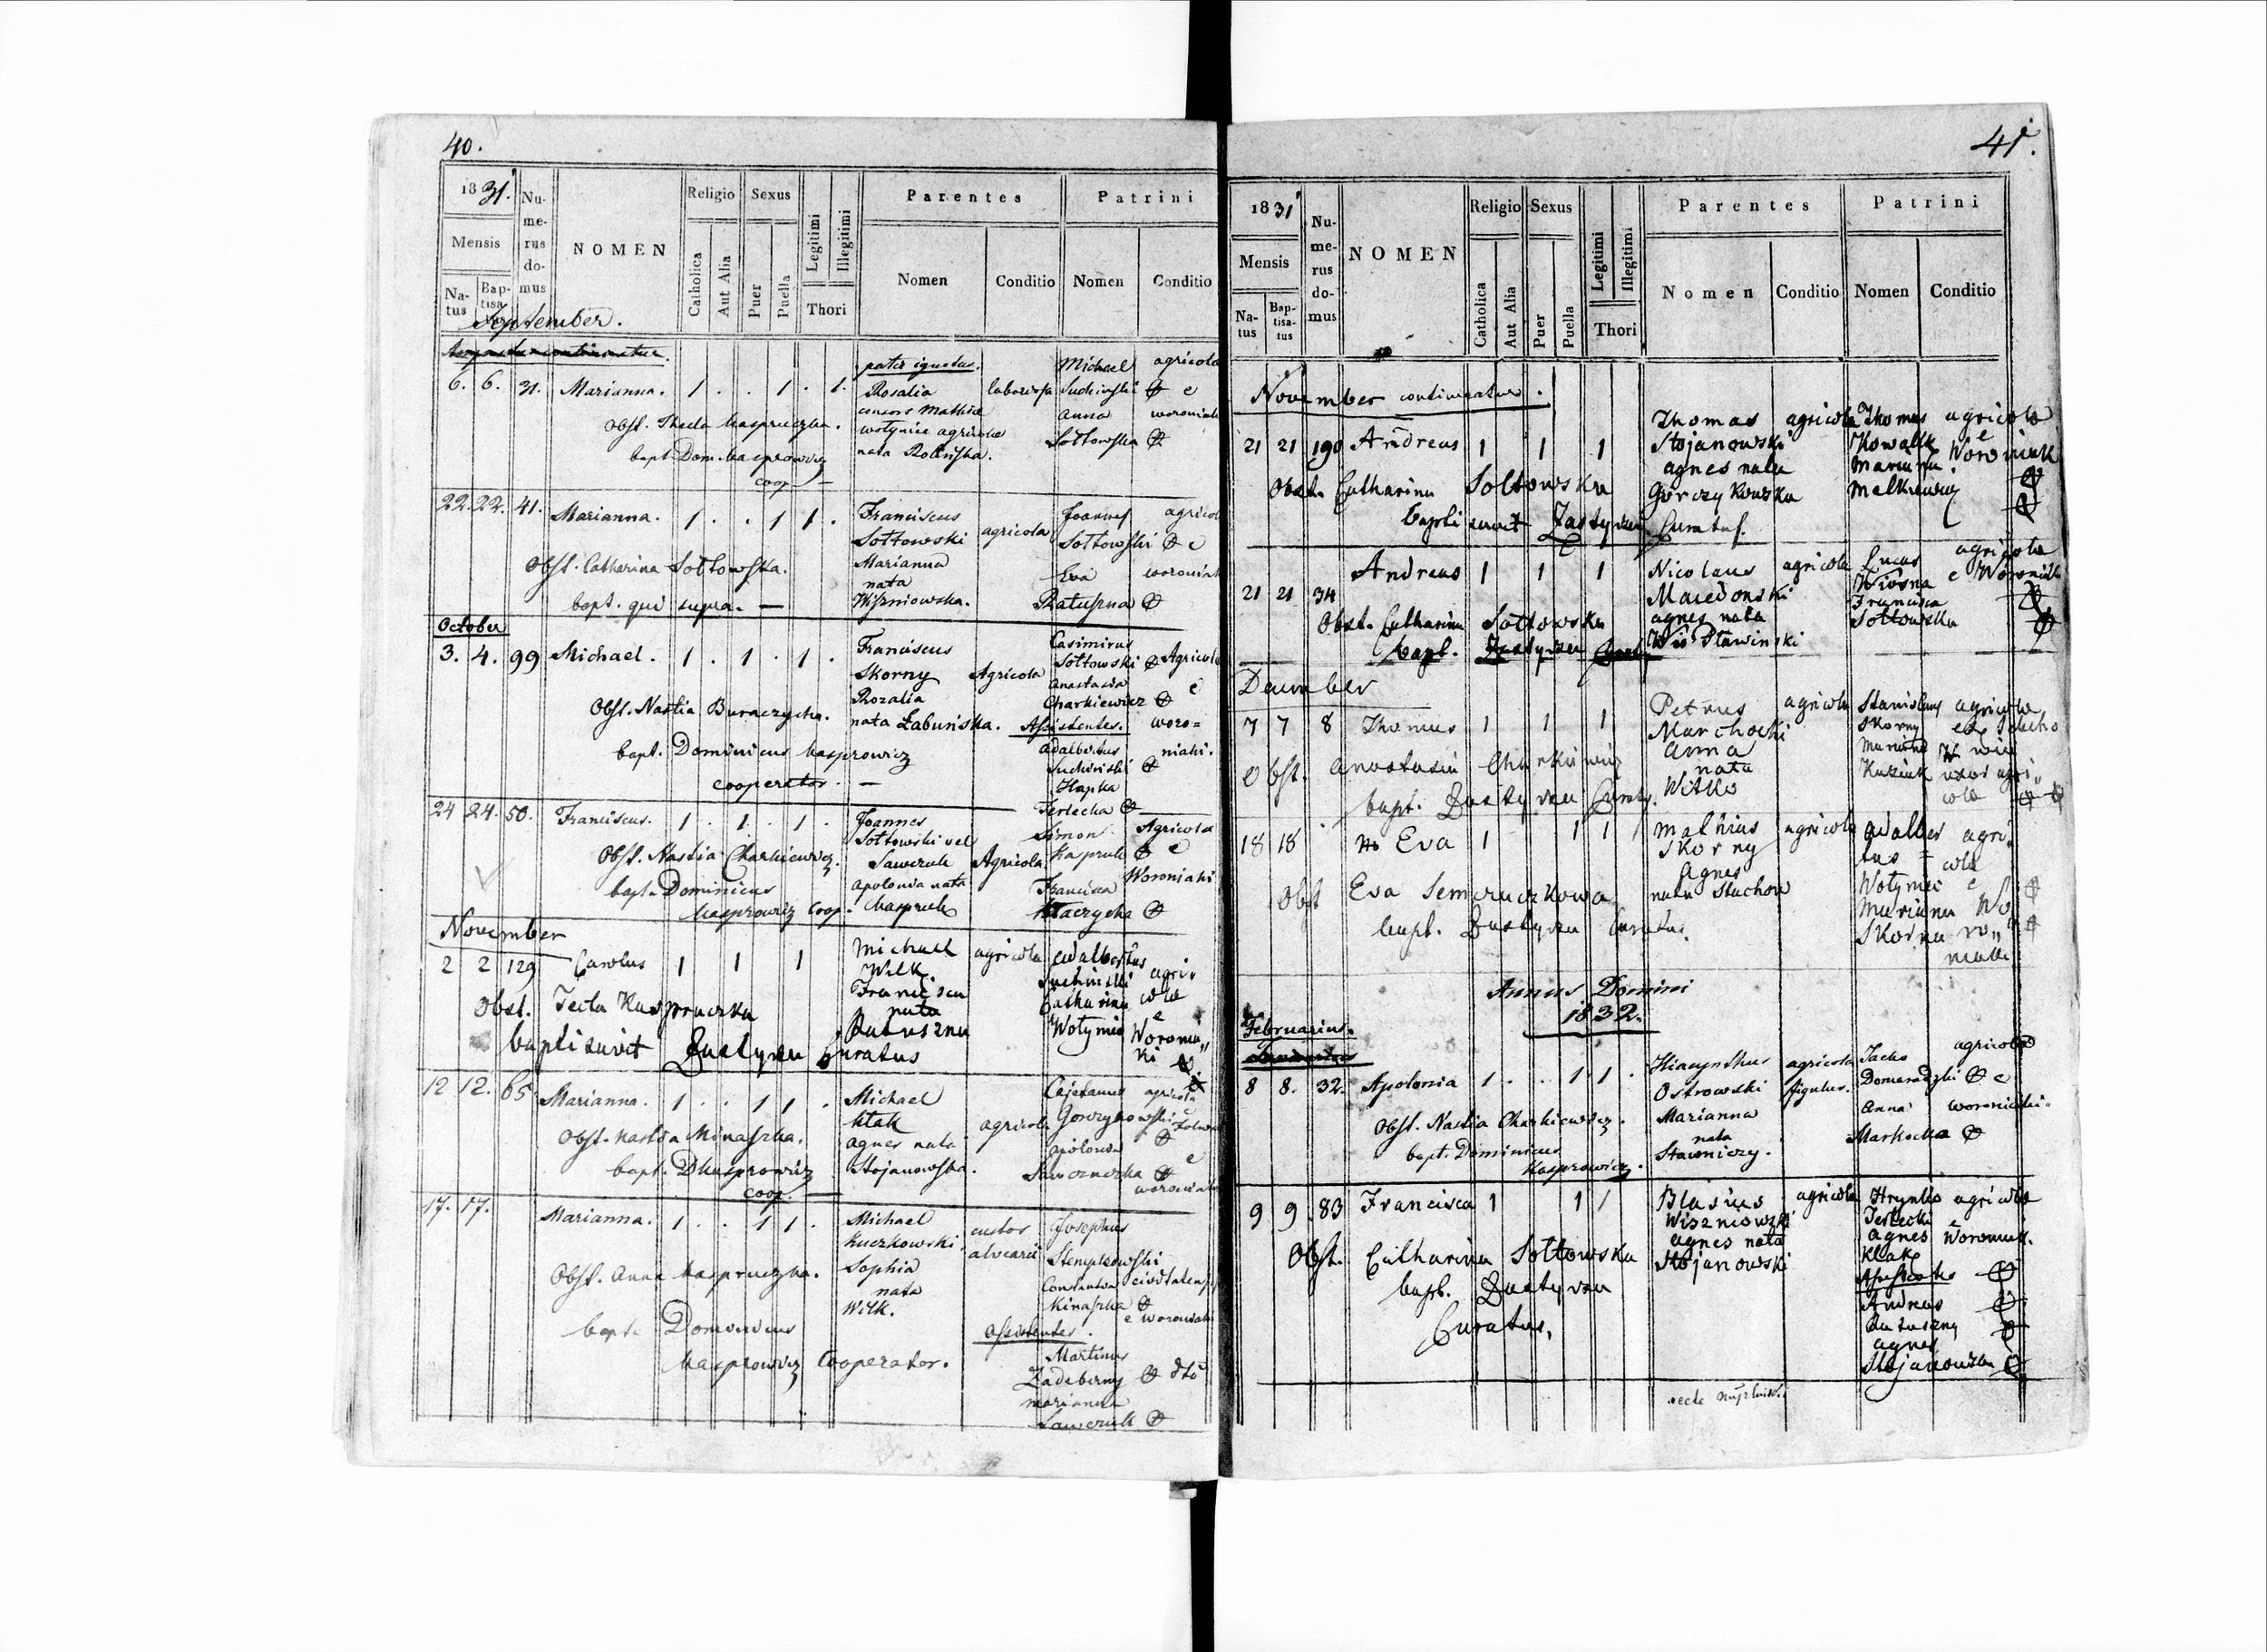 40.
1831.
Mensis
Natus
Baptisatus
Numerus domus
NOMEN
Religio
Catholica
Aut Alia
Sexus
Puer
Puella
Legitimi
Illegitimi
Thori
Parentes
Nomen
Conditio
Patrini
Nomen
Conditio
September.
6. 6. 31. Marianna. 1 . . 1 . 1.
pater ignotus.
Rosalia
consors Mathiae
Wołynice agricolae
nata Rolińska.
Michael agricola
Suchinski e
Anna woroniaki
Sołtowska
Obst. Thecla Kaspruczka.
bapt. Dom. Kasprowicz
coop. —
22. 22. 41. Marianna. 1 . . 1 1 .
Franciscus
Sołtowski agricola
Marianna
nata
Wiszniowska.
Joannes agricola
Sołtowski e
Eva woroniaki
Ratuszna
Obst. Catharina Sołtowska.
bapt. qui supra. —
October
3. 4. 99 Michael. 1 . 1 . 1 .
Franciscus
Skorny Agricola
Rozalia
nata Łabuńska.
Casimirus
Sołtowski Agricola
Anastasia e
Charkiewicz
Assistentes. woro=
Adalbertus niaki.
Suchinski
Hapka
Terlecka
Obst. Nastia Buraczycha.
bapt. Dominicus Kasprowicz
cooperator. —
24 24. 50. Franciscus. 1 . 1 . 1 .
Joannes
Sołtowski vel
Sawczuk Agricola
Apolonia nata
Kaspruk
Simon Agricola
Kaspruk e
Woroniaki
Francisca
Obst. Nastia Charkiewicz.
bapt. Dominicus
Kasprowicz Coop.
November
2 2 129 Carolus 1 1 1
Michael agricola
Wilk.
Francisca
nata
Ratuszna
Adalbertus
Suchinski agri„
Catharina cola
Wołynic e
Woronia„
ki
Obst. Tecla Kaspruczka
baptisavit Curatus
12. 12. 65. Marianna. 1 . . 1 1 .
Michael
Kłak agricola
Agnes nata
Stojanowska.
Cajetanus agricola
Gorczykowski
Apolonia
Sawczuczka e
woroniaki
Obst. Nastia Minaszka.
bapt. D Kasprowicz
coop. —
17. 17. Marianna. 1 . . 1 1 .
Michael custos
Kuczkowski alvearii
Sophia
nata
Wilk.
Josephus
Stempkowski
Constantia
Minaszka
e woroniaki
Assistentes.
Martinus
Zadeberny dto
Marianna
Sawczuk
Obst. Anna Kaspruczka.
bapt. Dominicus
Kasprowicz Cooperator.
41.
1831
Mensis
Natus
Baptisatus
Numerus domus
NOMEN
Religio
Catholica
Aut Alia
Sexus
Puer
Puella
Legitimi
Illegitimi
Thori
Parentes
Nomen
Conditio
Patrini
Nomen
Conditio
November continuatur.
21 21 190 Andreas 1 1 1
Thomas agricola
Stojanowski
Agnes nata
Gorczykowska
Thomas agricola
Kowalik e
Mariana Woroniak
Melkiewicz
Obst. Catharina Sołtowska
baptisavit Curatus.
21 21 34 Andreas 1 1 1
Nicolaus agricola
Macedonski
agnes nata
Lucas agricola
Wiosna e Woroniaki
Francisca
Sołtowska
Obst. Catharina Sołtowska
bapt.
December
7 7 8 Thomas 1 1 1
Petrus agricola
Marchocki
Anna
nata
Witko
Stanislaus agricola
Skorny
Mariana
Kuziuk uxor agri„
cola
Obst. Anastasia Charkiewicz
bapt. Curatus.
18 18 Eva 1 1 1
Mathias agricola
Skorny
Agnes
nata Stachow
Adalber agri„
tus = cola
Wołynic e
Mariana Wo
Skorna ro„
niaki
Obst Eva Semczuczkowa
bapt. Curatus.
Annus Domini
1832.
Februarius.
8 8. 32. Apolonia 1 . . 1 1 .
Hiacynthus agricola
Ostrowski figulus.
Marianna
nata
Stawniczy.
Jacko agricola
Domaradzki e
Anna woroniaki.
Markocka
Obst. Nastia Charkiewicz.
bapt. Dominicus
Kasprowicz.
9 9 83 Francisca 1 1 1
Blasius agricola
Wiszniowski
agnes nata
Stojanowski
Hrynko agricola
Terlecki e
Agnes Woroniak.
Kłak
Andreas
Ratuszny
agnes
Stojanowska
Obst. Catharina Sołtowska
bapt.
Curatus.